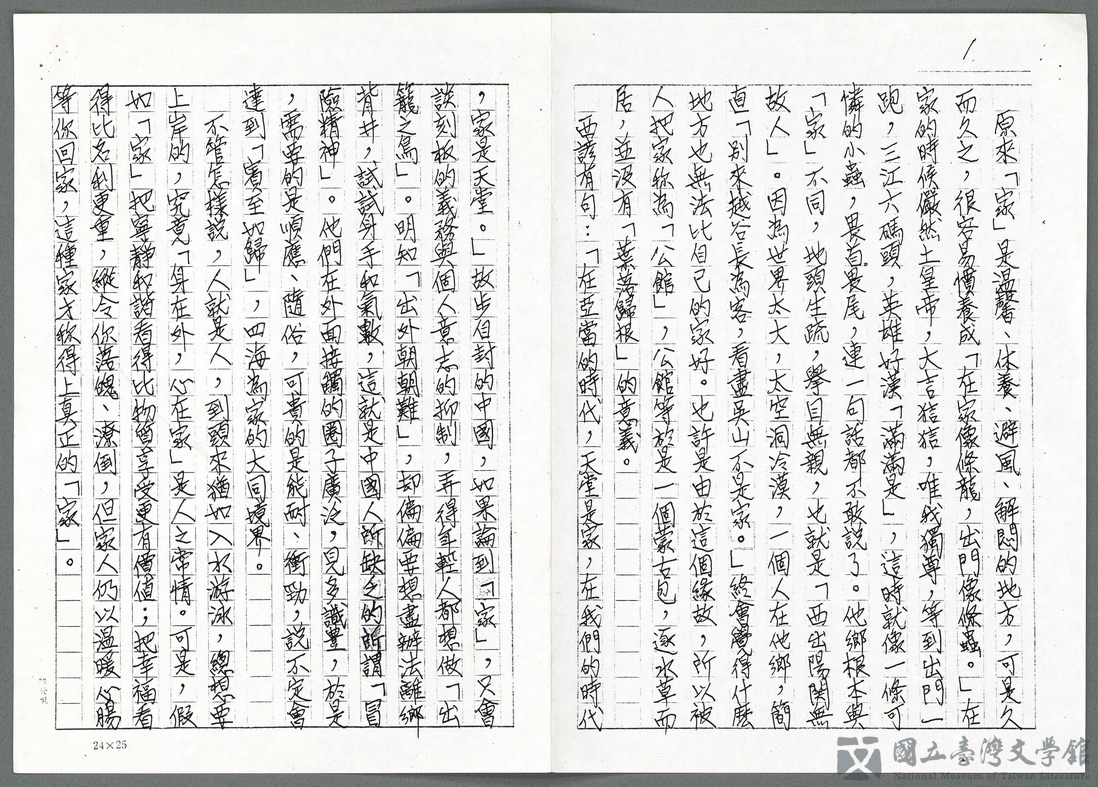 1.
原來「家」是溫馨、休養、避風、解悶的地方，可是久
而久之，很容易慣養成「在家像條龍，出門像條蟲。」在
家的時候儼然土皇帝，大言狺狺，唯我獨尊，等到出門一
跑，三江六碼頭，英雄好漢「滿滿是」，這時就像一條可
憐的小蟲，畏首畏尾，連一句話都不敢說了。他鄉根本與
「家」不同，地頭生疏，舉目無親，也就是「西出陽関無
故人」。因為世界太大，太空洞冷漠，一個人在他鄉，簡
直「別來越谷長為客，看盡吳山不是家。」終會覺得什麼
地方也無法比自己的家好。也許是由於這個緣故，所以被
人把家称為「公館」，公館等於是一個蒙古包，逐水草而
居，並沒有「葉落歸根」的意義。
西諺有句：「在亞當的時代，天堂是家，在我們的時代
，家是天堂。」故步自封的中國，如果論到「家」，只會
談刻板的義務與個人意志的抑制，弄得年輕人都想做「出
籠之鳥」。明知「出外朝朝難」，却偏偏要想盡辦法離鄉
背井，試試身手和氣數，這就是中國人所缺乏的所謂「冒
險精神」。他們在外面接觸的圈子廣泛，見多識豐，於是
，需要的是順應、隨俗，可貴的是能耐、衝勁，說不定會
達到「賓至如歸」，四海為家的大同境界。
不管怎樣說，人就是人，到頭來猶如入水游泳，總想要
上岸的，究竟「身在外，心在家」是人之常情。可是，假
如「家」把寧靜和諧看得比物質享受更有價值；把幸福看
得比名利更重，縱令你落魄、潦倒，但家人仍以溫暖心腸
等你回家，這種家才称得上真正的「家」。
24×25
國立臺灣文學館
National Museum of Taiwan Literature